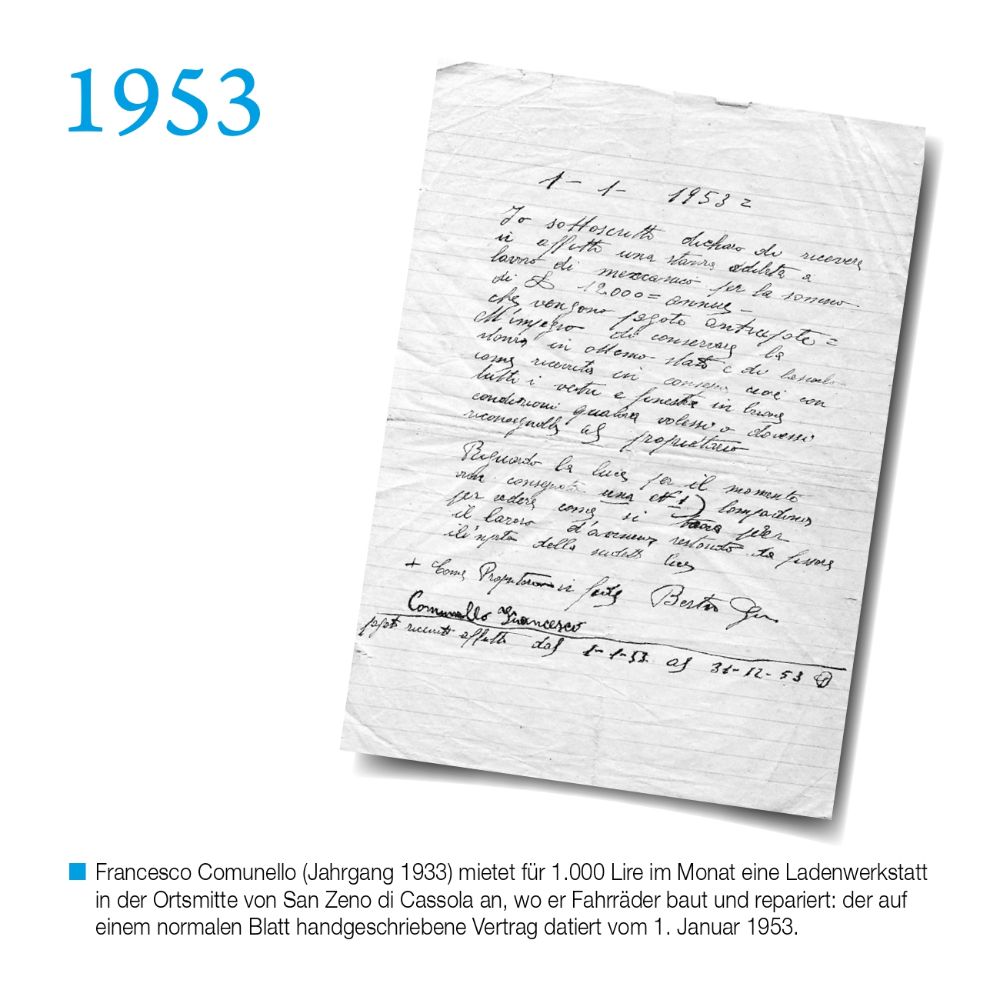 1953
1 - 1 - 1953 =
Io sottoscritto dichiaro di ricevere
in affitto una stanza adibita a
lavoro di meccanico per la somma
di £ 12.000 = annue -
che vengono pagate anticipate =
M'impegno di conservare la
stanza in ottimo stato e di
come ricevuta in consegna cioè con
tutti i vetri e finestre in buone
condizioni qualora volessi o dovessi
riconsegnarla al proprietario
Riguardo la luce per il momento
una (N° 1) lampadina
per vedere come si per
il lavoro d'avenire restando da
della sudetta luce
+ Come Proprietario in fede
Comunello Francesco
affitto dal 1-1-53 al 31-12-53
Francesco Comunello (Jahrgang 1933) mietet für 1.000 Lire im Monat eine Ladenwerkstatt
in der Ortsmitte von San Zeno di Cassola an, wo er Fahrräder baut und repariert: der auf
einem normalen Blatt handgeschriebene Vertrag datiert vom 1. Januar 1953.